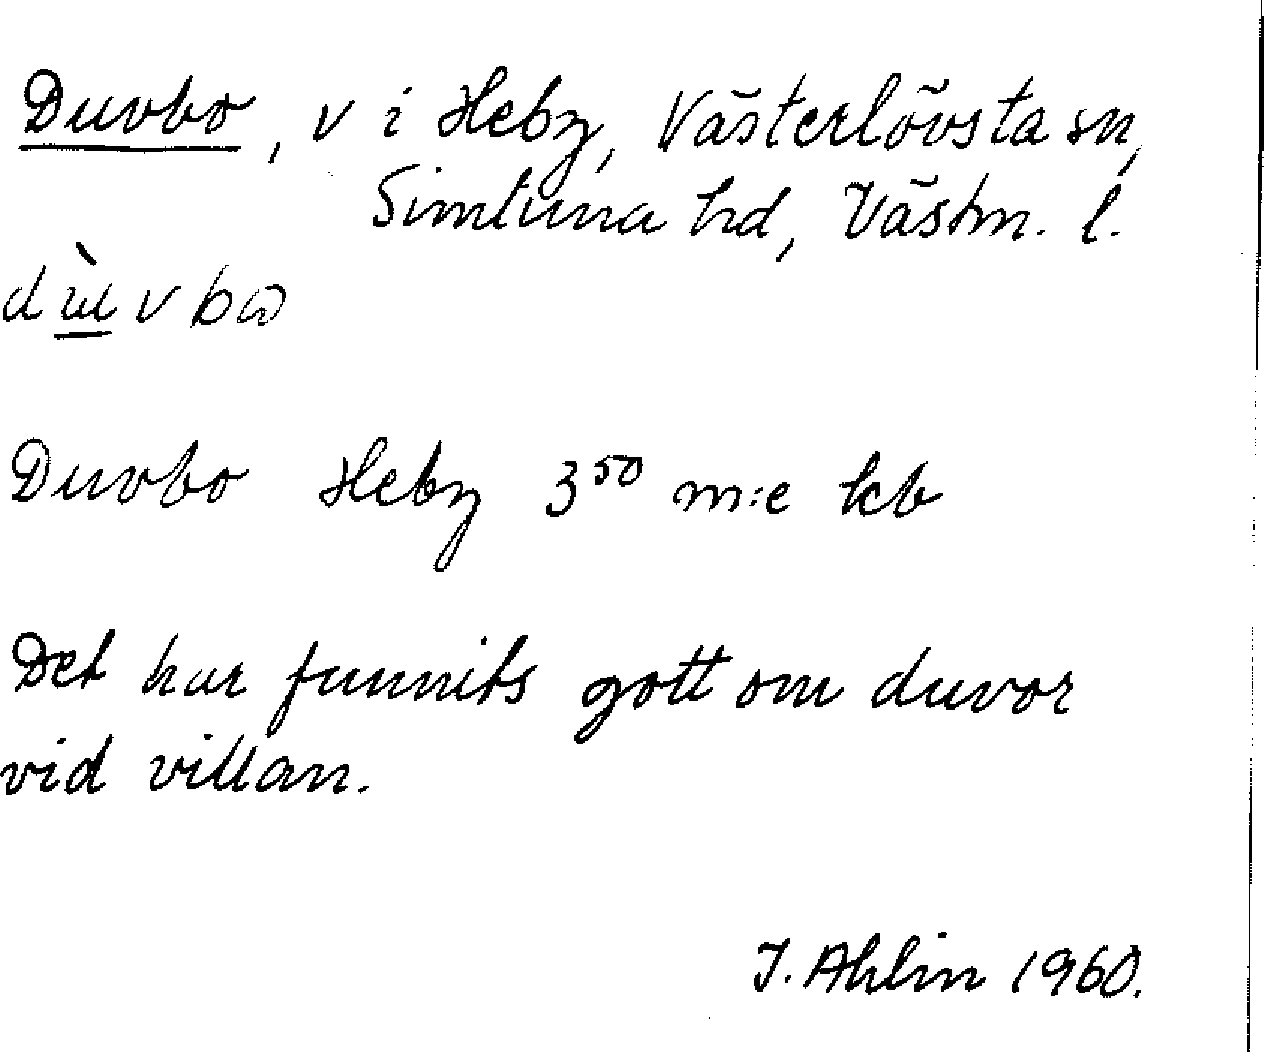 Duvbo, v i Heby, Västerlövsta sn,
Simtuna hd, Västm. l.
dùvbω
Duvbo Heby 3⁵⁰ m:e kb
Det har funnits gott om duvor
vid villan.
I. Ahlin 1960.